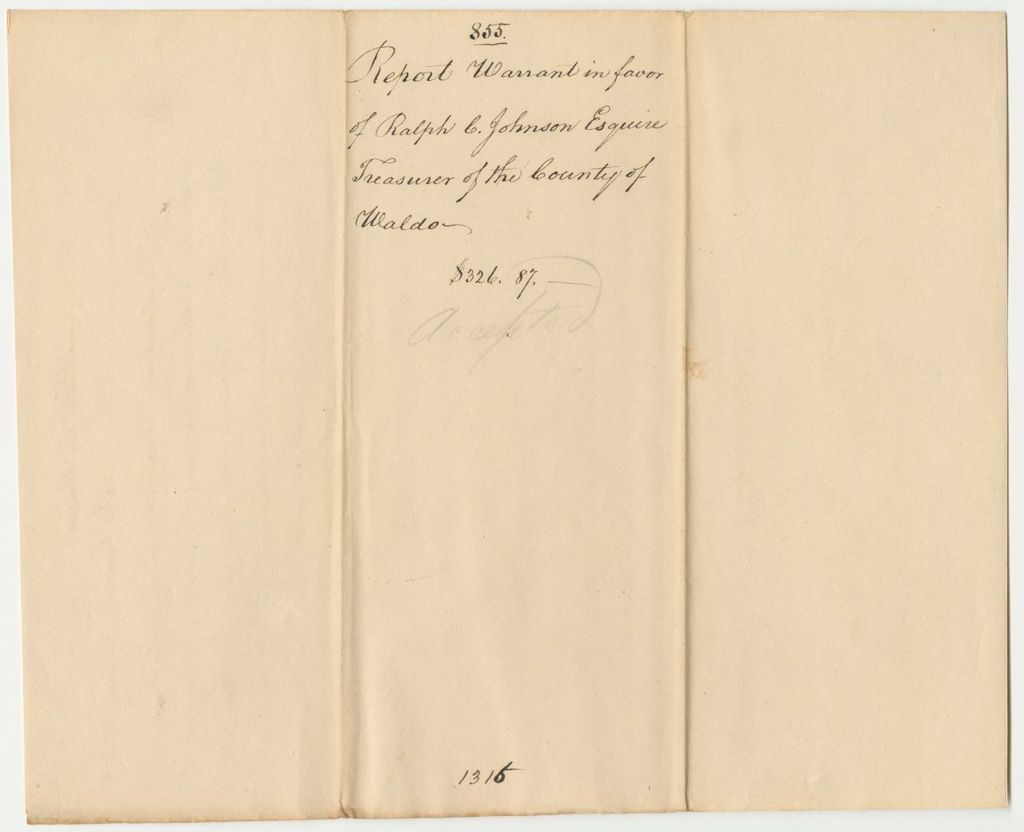 855.
Report Warrant in favor
of Ralph C. Johnson Esquire
Treasurer of the County of
Waldo
$326. 87. —
Accepted
1315